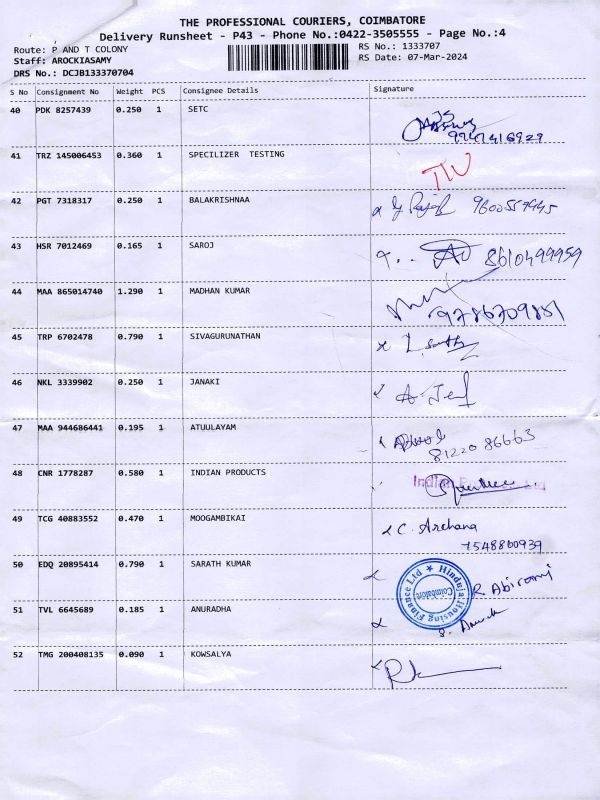 THE PROFESSIONAL COURIERS, COIMBATORE
Delivery Runsheet - P43 - Phone No.:0422-3505555 - Page No.:4
Route: P AND T COLONY
RS No.: 1333707
Staff: AROCKIASAMY
RS Date: 07-Mar-2024
DRS No.: DCJB133370704
S No Consignment No Weight PCS Consignee Details Signature
40 PDK 8257439 0.250 1 SETC
41 TRZ 145006453 0.360 1 SPECILIZER TESTING
42 PGT 7318317 0.250 1 BALAKRISHNAA
43 HSR 7012469 0.165 1 SAROJ 8610499959
44 MAA 865014740 1.290 1 MADHAN KUMAR
9786709851
45 TRP 6702478 0.790 1 SIVAGURUNATHAN
46 NKL 3339902 0.250 1 JANAKI
47 MAA 944686441 0.195 1 ATUULAYAM
81220 86663
48 CNR 1778287 0.580 1 INDIAN PRODUCTS Indian
49 TCG 40883552 0.470 1 MOOGAMBIKAI C. Archana
7548800939
50 EDQ 20895414 0.790 1 SARATH KUMAR Hinduja Housing Finance Ltd ★ Coimbatore R Abirami
51 TVL 6645689 0.185 1 ANURADHA
52 TMG 200408135 0.090 1 KOWSALYA